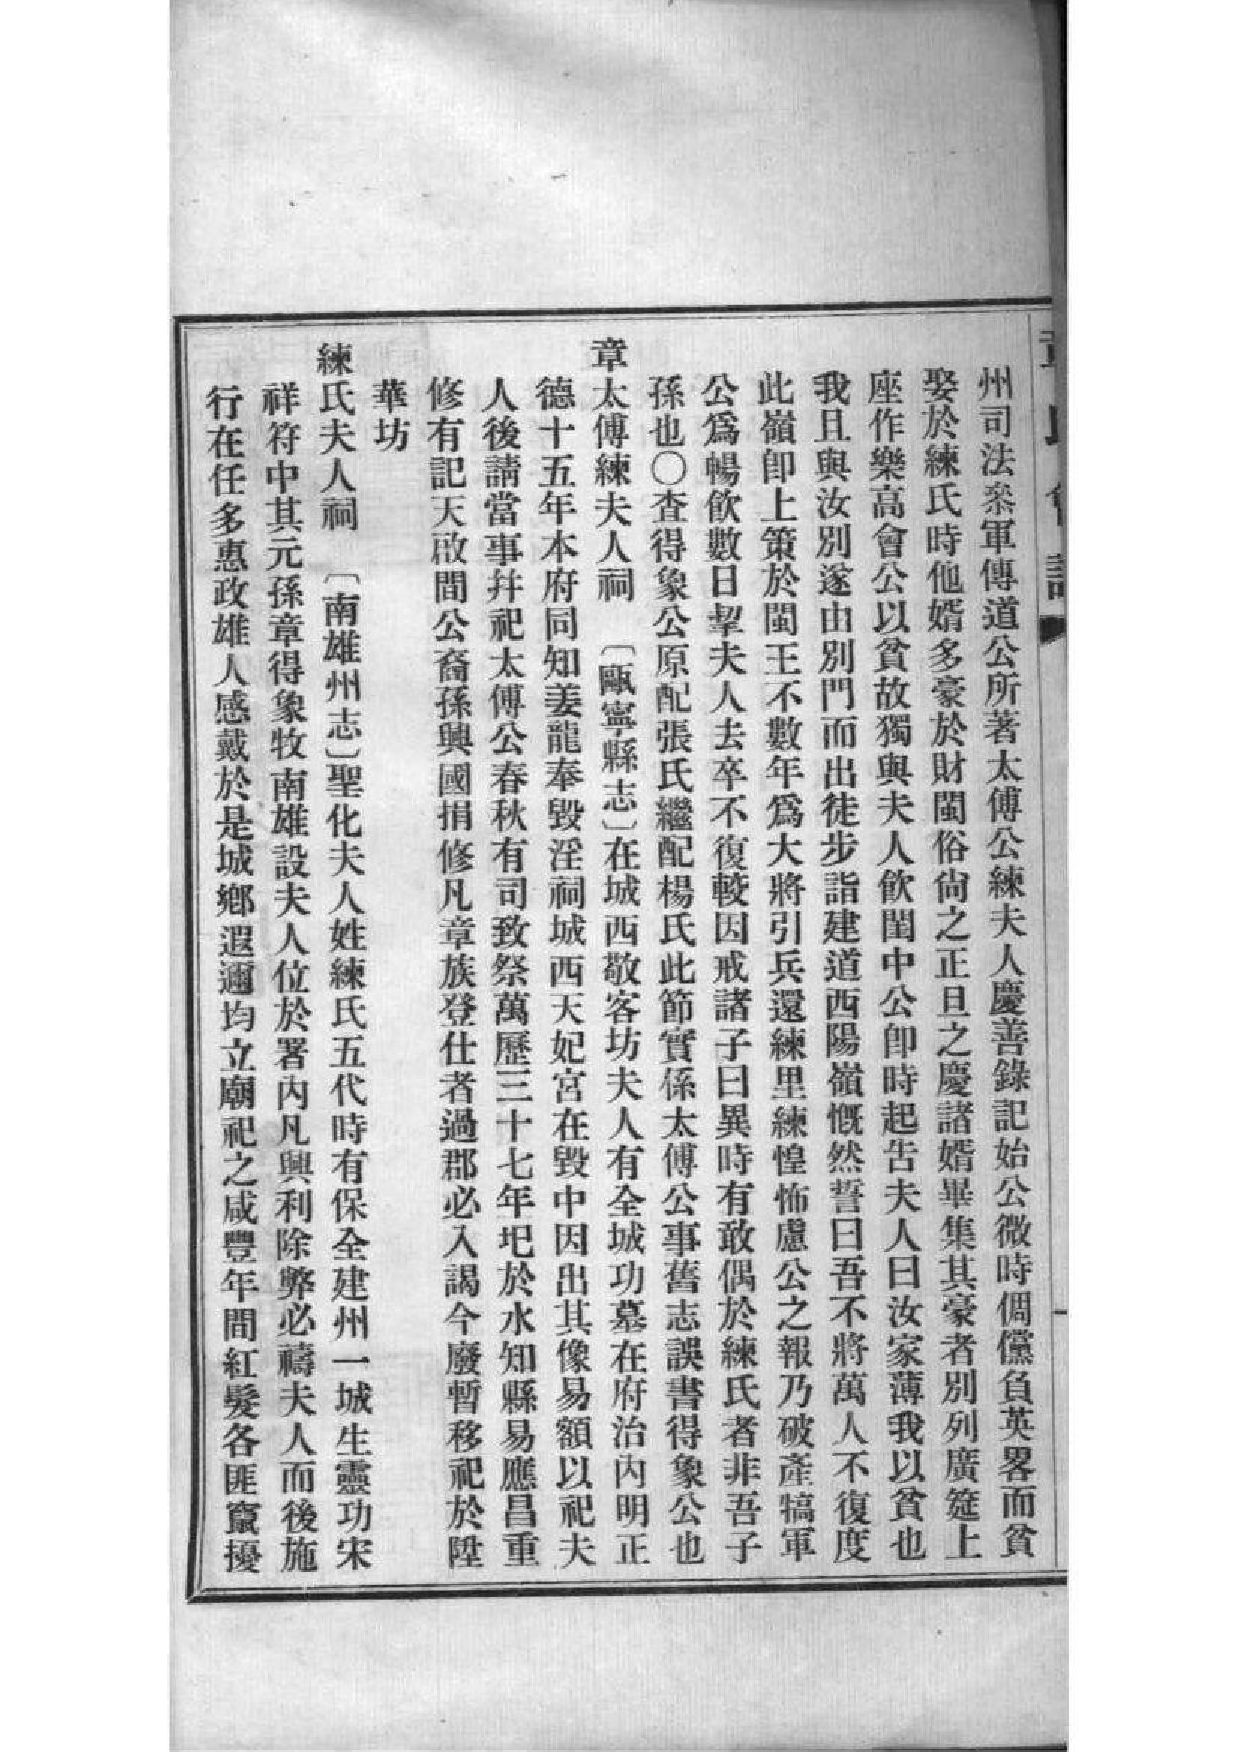 州司法叅軍傳道公所著太傅公練夫人慶善錄記始公微時倜儻負英畧而貧
娶於練氏時他婿多豪於財閩俗尙之正旦之慶諸婿畢集其豪者別列廣筵上
座作樂高會公以貧故獨與夫人飮閨中公卽時起告夫人曰汝家薄我以貧也
我且與汝別遂由別門而出徒步詣建道西陽嶺慨然誓曰吾不將萬人不復度
此嶺卽上策於閩王不數年爲大將引兵還練里練惶怖慮公之報乃破產犒軍
公爲暢飮數日挈夫人去卒不復較因戒諸子曰異時有敢偶於練氏者非吾子
孫也○查得象公原配張氏繼配楊氏此節實係太傅公事舊志誤書得象公也
章太傅練夫人祠 〔甌寧縣志〕在城西敬客坊夫人有全城功墓在府治內明正
德十五年本府同知姜龍奉毀淫祠城西天妃宮在毀中因出其像易額以祀夫
人後請當事幷祀太傅公春秋有司致祭萬歷三十七年圯於水知縣易應昌重
修有記天啟間公裔孫興國捐修凡章族登仕者過郡必入謁今廢暫移祀於陞
華坊
練氏夫人祠 〔南雄州志〕聖化夫人姓練氏五代時有保全建州一城生靈功宋
祥符中其元孫章得象牧南雄設夫人位於署內凡興利除弊必禱夫人而後施
行在任多惠政雄人感戴於是城鄕遐邇均立廟祀之咸豐年間紅髮各匪竄擾